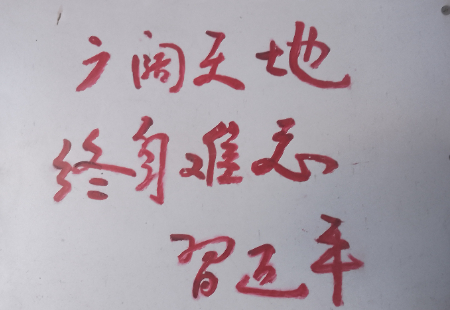 广阔天地
终身难忘
習近平